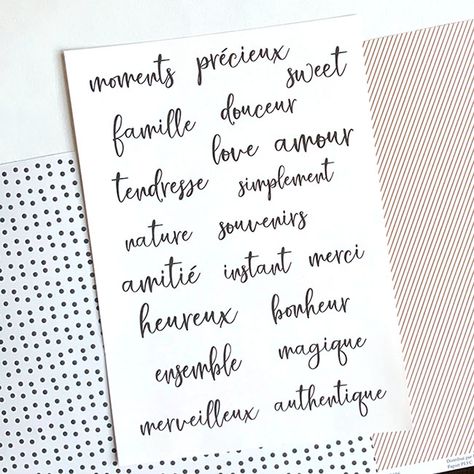 moments précieux
sweet
famille douceur
love amour
tendresse simplement
nature souvenirs
amitié instant merci
heureux bonheur
ensemble magique
merveilleux authentique